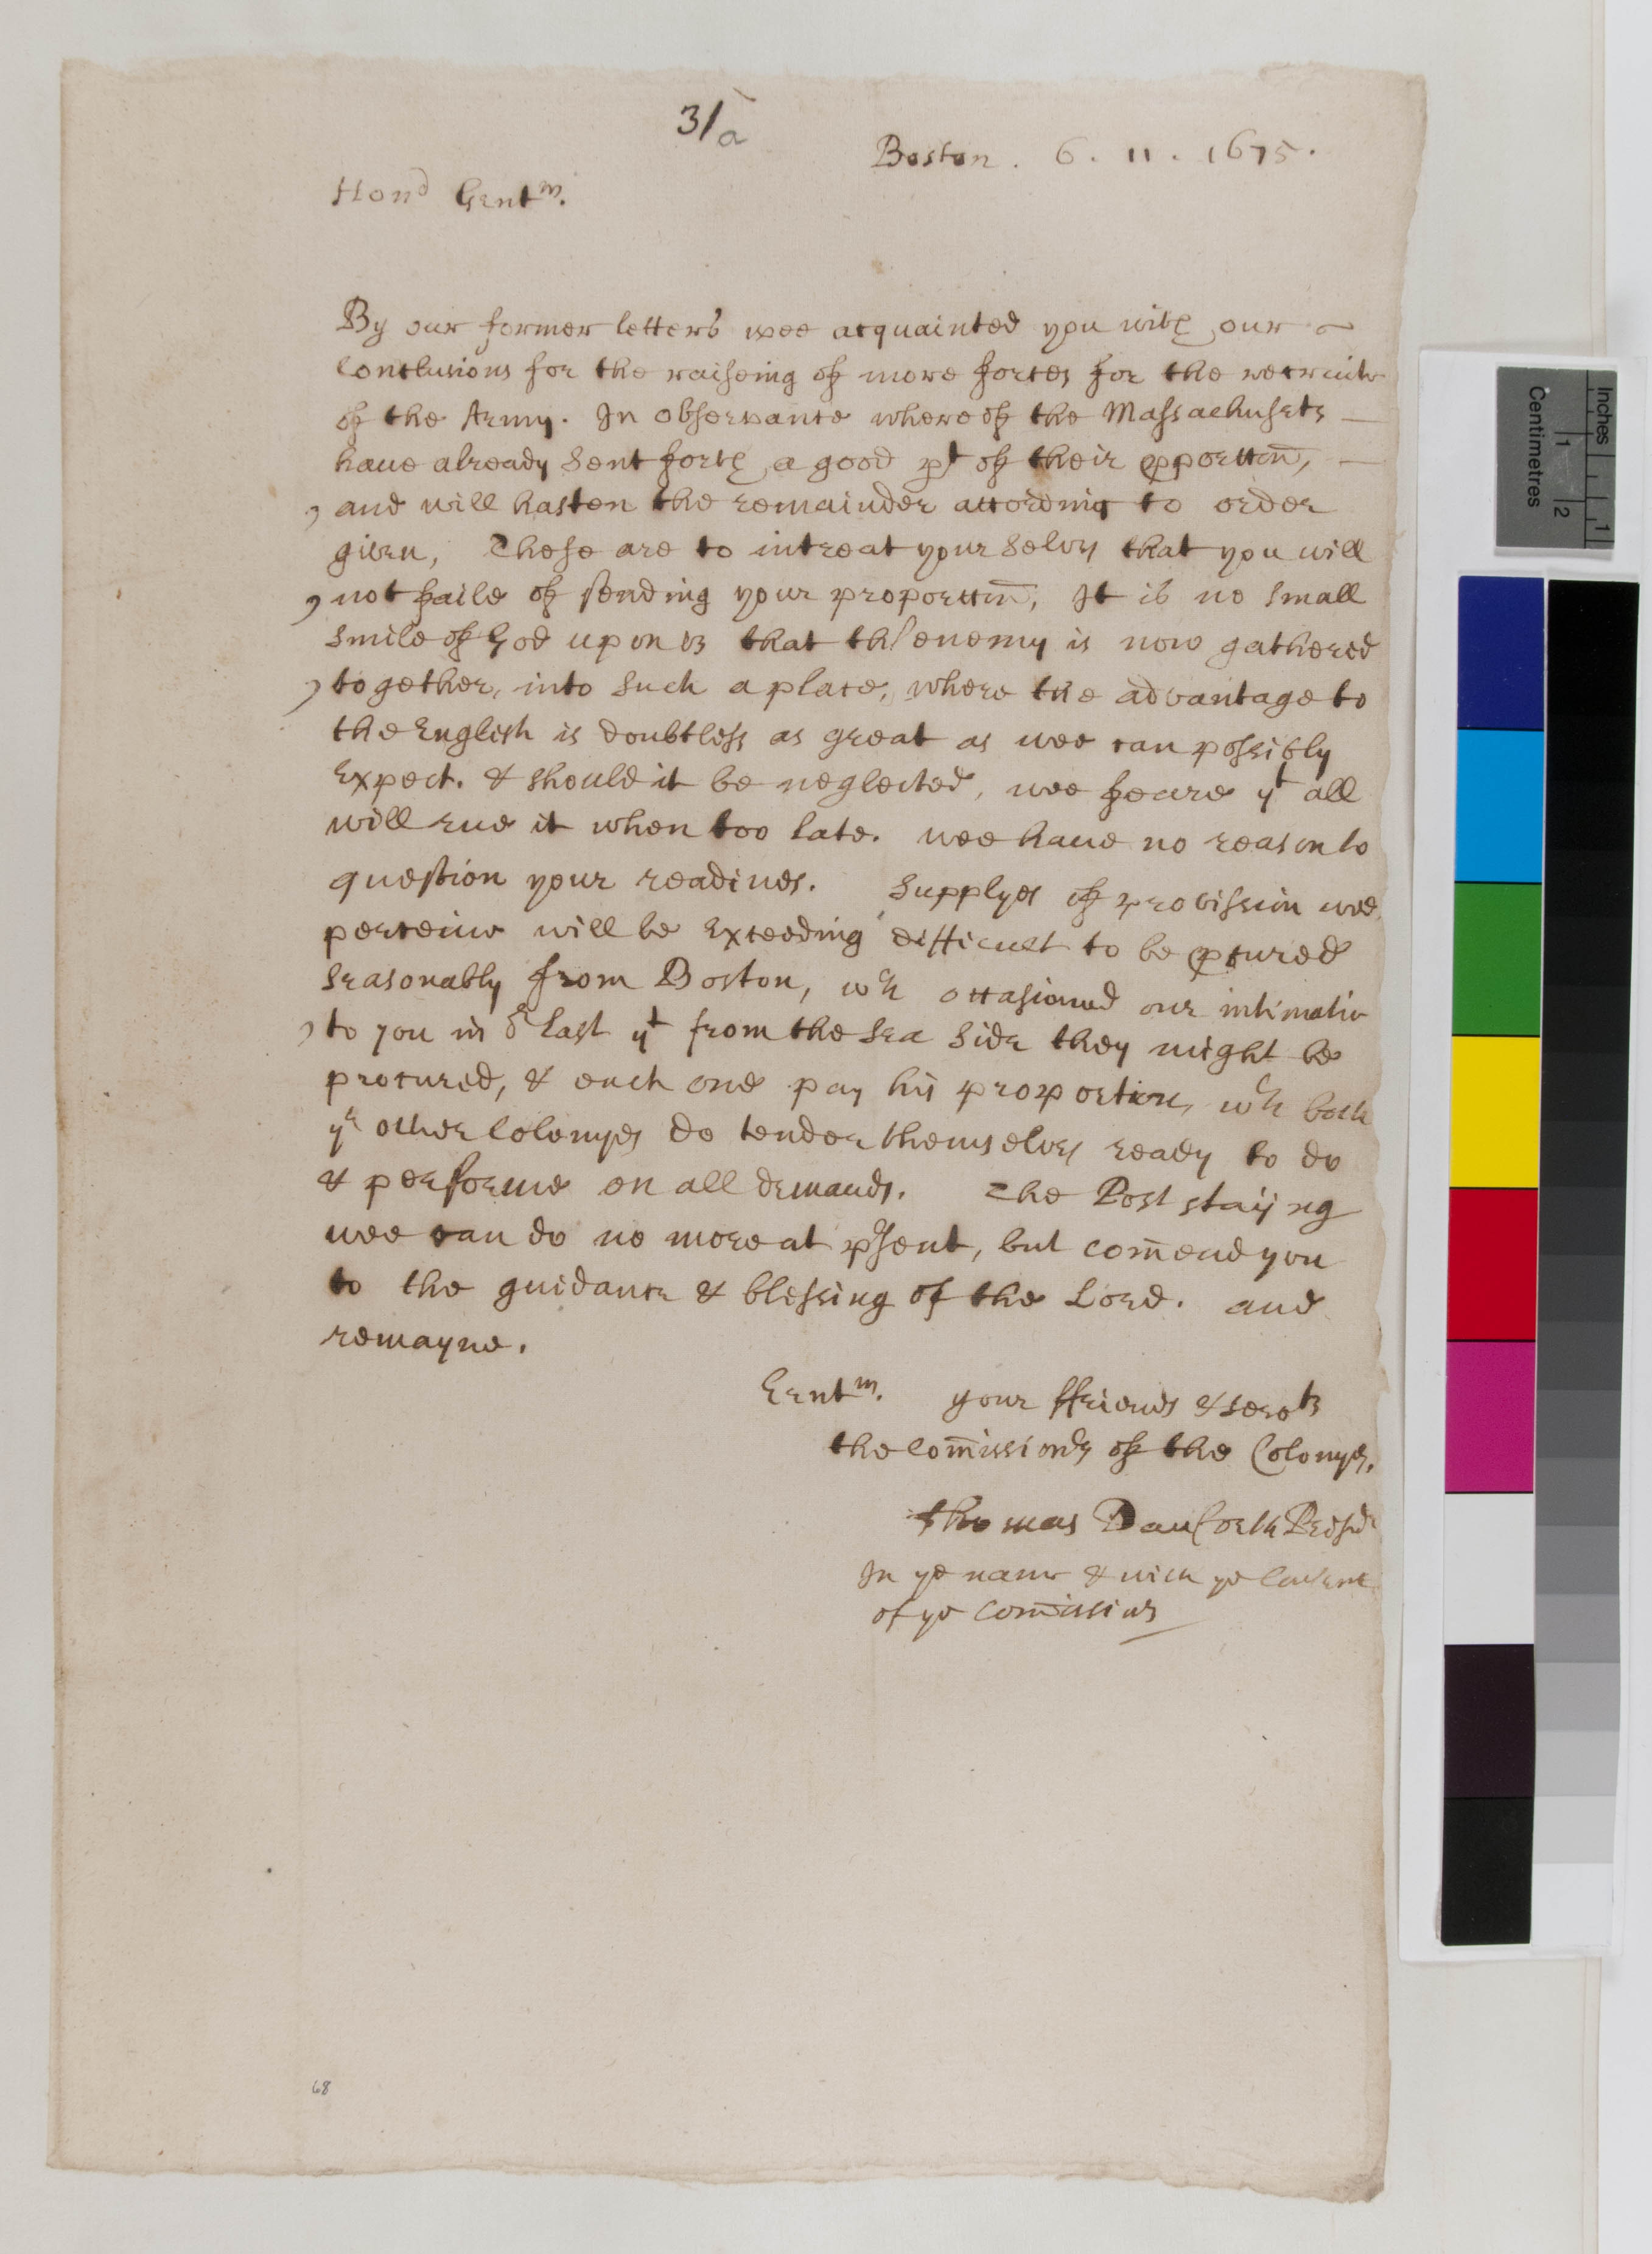 31/a
Boston . 6 . 11 . 1675 .
Hond Gentm.
By our former letters wee acquainted you with our
Conclusions for the raiseing of more forces for the recruite
of the Army. In observance whereof the Massachusets —
have already sent forth a good pt of their pportion, —
and will hasten the remainder according to order
given, These are to intreat your selves that you will
not faile of sending your proportion, It is no small
smile of God upon us that the enemy is now gathered
together, into such a place, where the advantage to
the English is doubtless as great as wee can possibly
Expect. & should it be neglected, wee feare yt all
will rue it when too late. wee have no reason to
question your readines. Supplyes of provission wee
perceive will be Exceeding difficult to be pcured
seasonably from Boston, wch occasioned our intimatio
to you in or last yt from the sea side they might be
procured, & each one pay his proportion, wch both
ye other Colonyes do tender themselves ready to do
& performe on all demands. The Post staijng
wee can do no more at psent, but comend you
to the guidance & blessing of the Lord. and
remayne.
Gentm. your ffriends & servts
the Comissionrs of the Colonyes.
Thomas Danforth Presidt
In ye name & with ye Consent
of ye Comissinrs
68
Inches
Centimetres
1
1
2